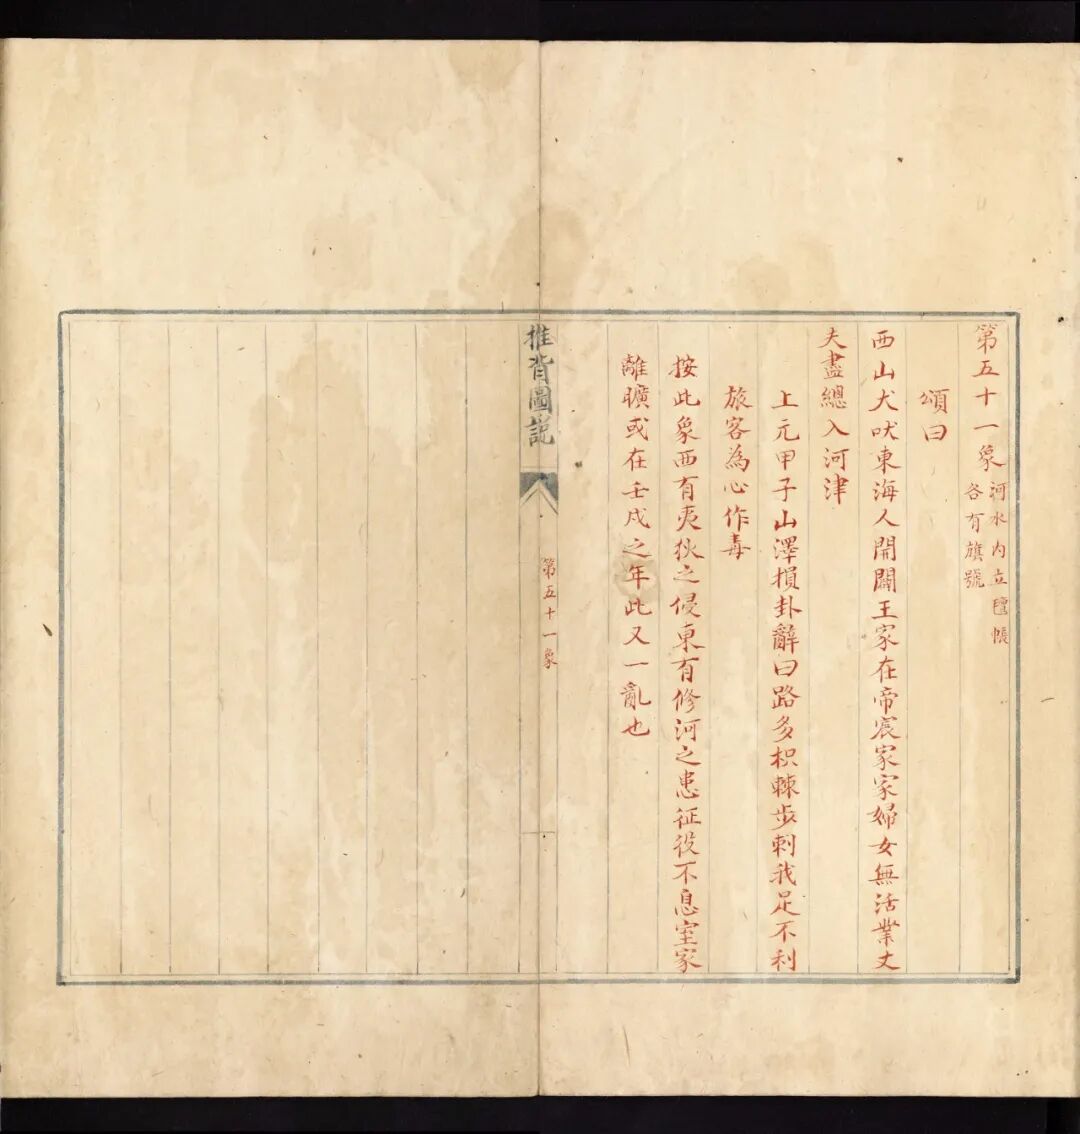 第五十一象
河水内立氊帳
各有旗號
頌曰
西山犬吠東海人開闢王家在帝宸家家婦女無活業丈
夫盡總入河津
上元甲子山澤損卦辭曰路多枳棘步刺我足不利
旅客為心作毒
按此象西有夷狄之侵東有修河之患征役不息室家
離曠或在壬戍之年此又一亂也
推背圖説
第五十一象